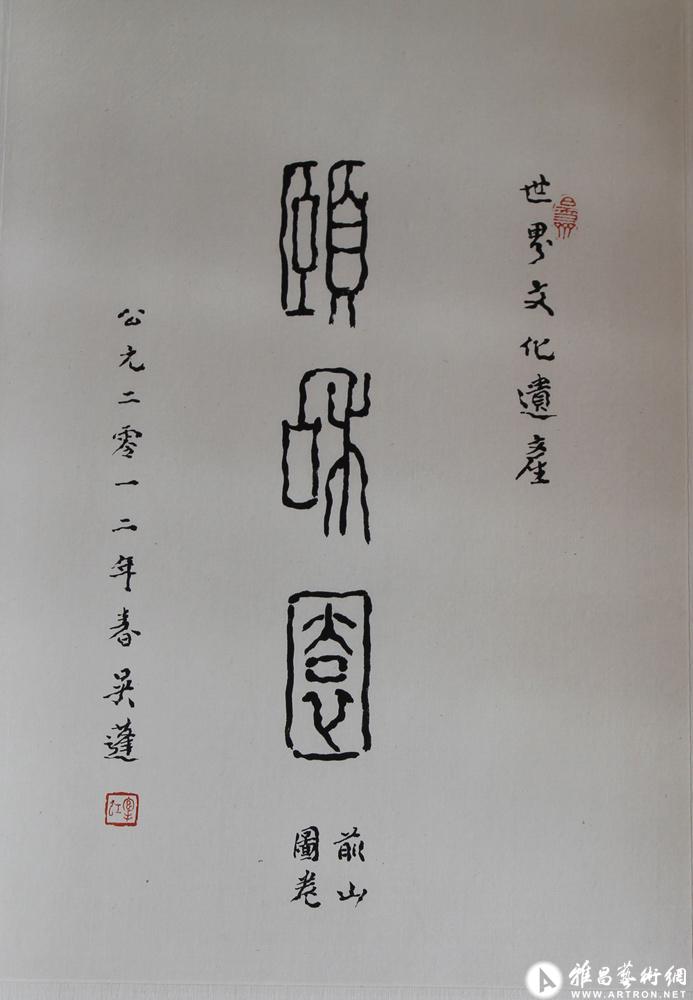 世界文化遺產
頤和園
前山
圖卷
公元二零一二年春吳蓬
雅昌藝術網
WWW.ARTRON.NET